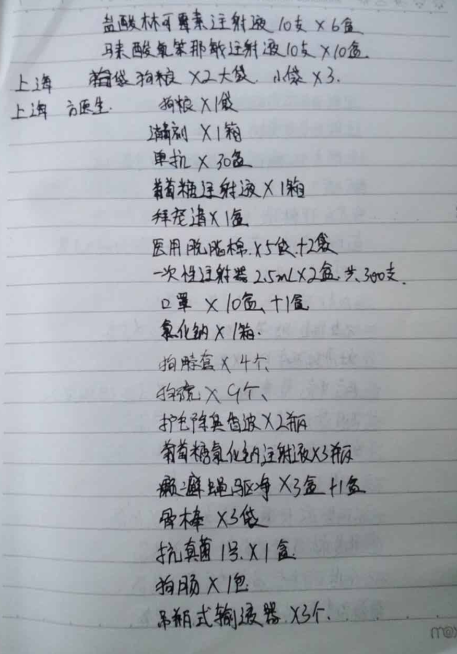 盐酸林可霉素注射液10支×6盒
马来酸氯苯那敏注射液10支×10盒
上海 袋狗粮×2大袋 小袋×3.
上海 方医生. 狗粮×1袋
针剂×1箱
单抗×30盒
葡萄糖注射液×1箱
拜宠清×1盒
医用脱脂棉×5袋+2袋
一次性注射器2.5mL×2盒 共300支.
口罩×10盒、+1盒
氯化钠×1箱.
狗脖套×4个、
狗碗×9个、
护毛除臭香波×2瓶
葡萄糖氯化钠注射液×3瓶
癞癣螨驱净×3盒+1盒
骨棒×3袋
抗真菌1号.×1盒
狗肠×1包
吊瓶式输液器×3个.